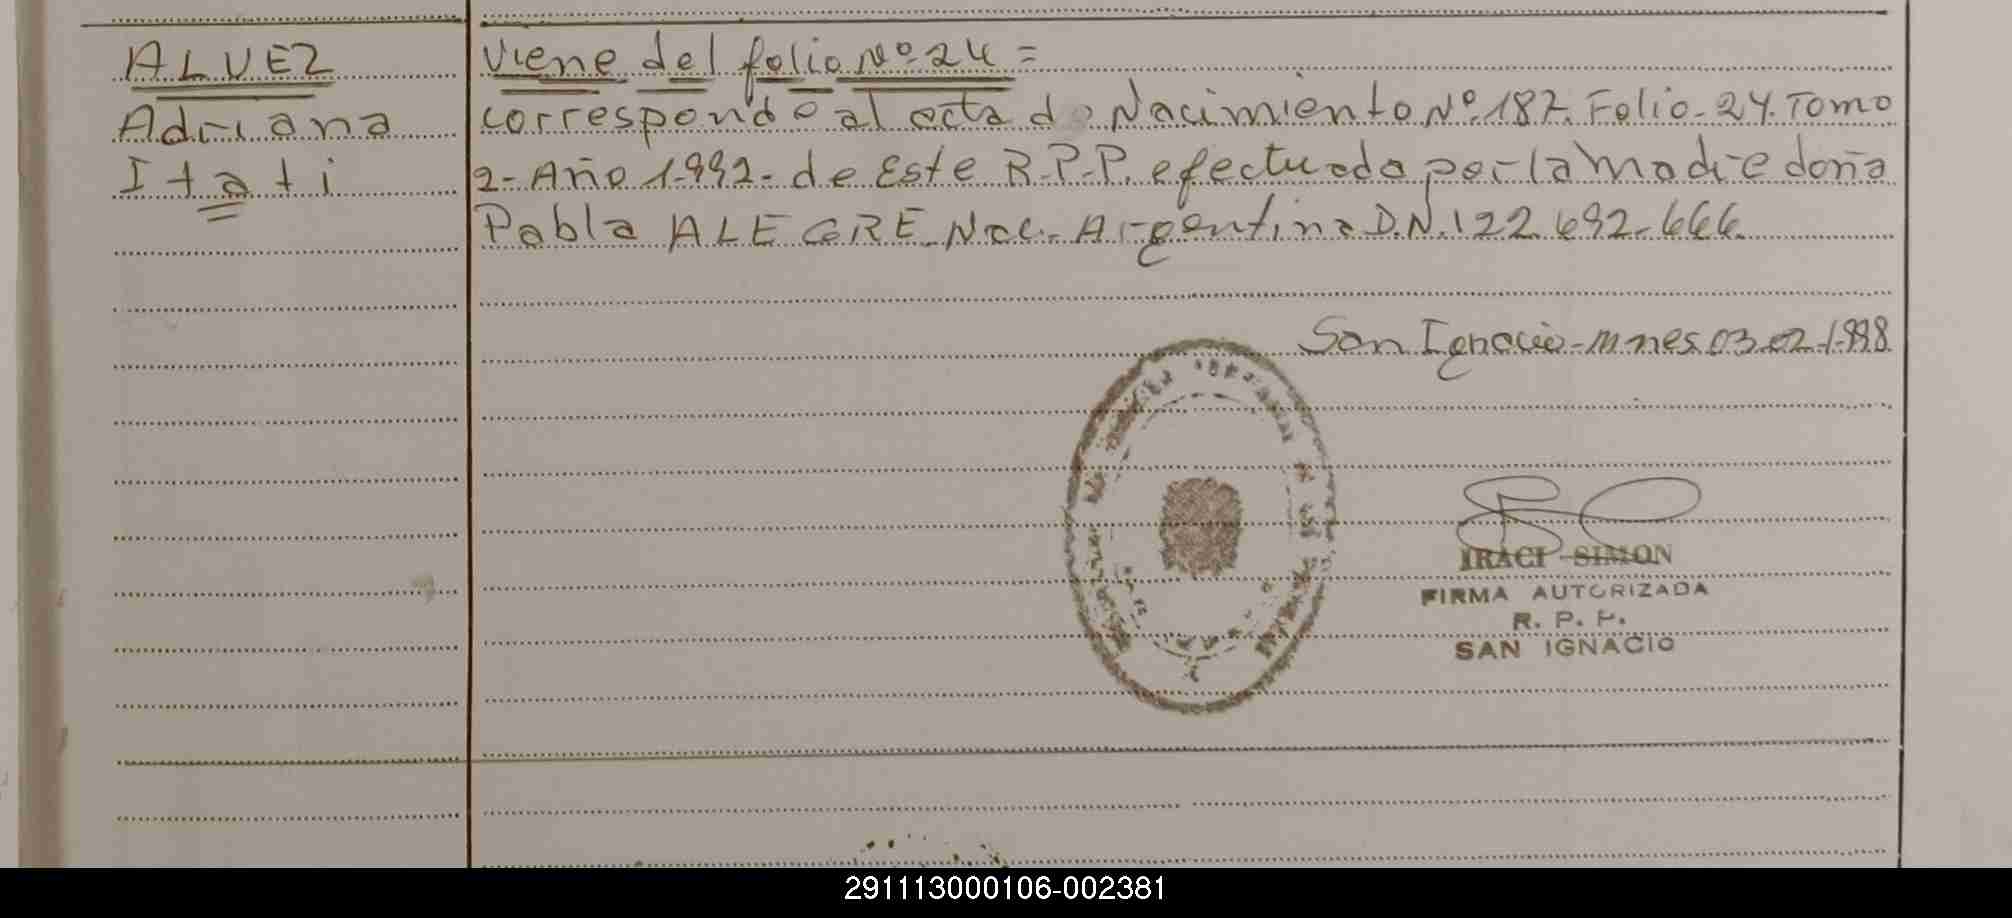 ALVEZ
Adriana
Itati
Viene del folio Nº 24 =
corresponde al acta de Nacimiento Nº 187. Folio - 24. Tomo
2 - Año 1.992 - de Este R.P.P. efectuado por la Madre doña
Pabla ALEGRE - Nac. Argentina D.N.I 22.692.666
San Ignacio - Mnes 03.02.1.998
IRACI SIMON
FIRMA AUTORIZADA
R. P. P.
SAN IGNACIO
291113000106-002381